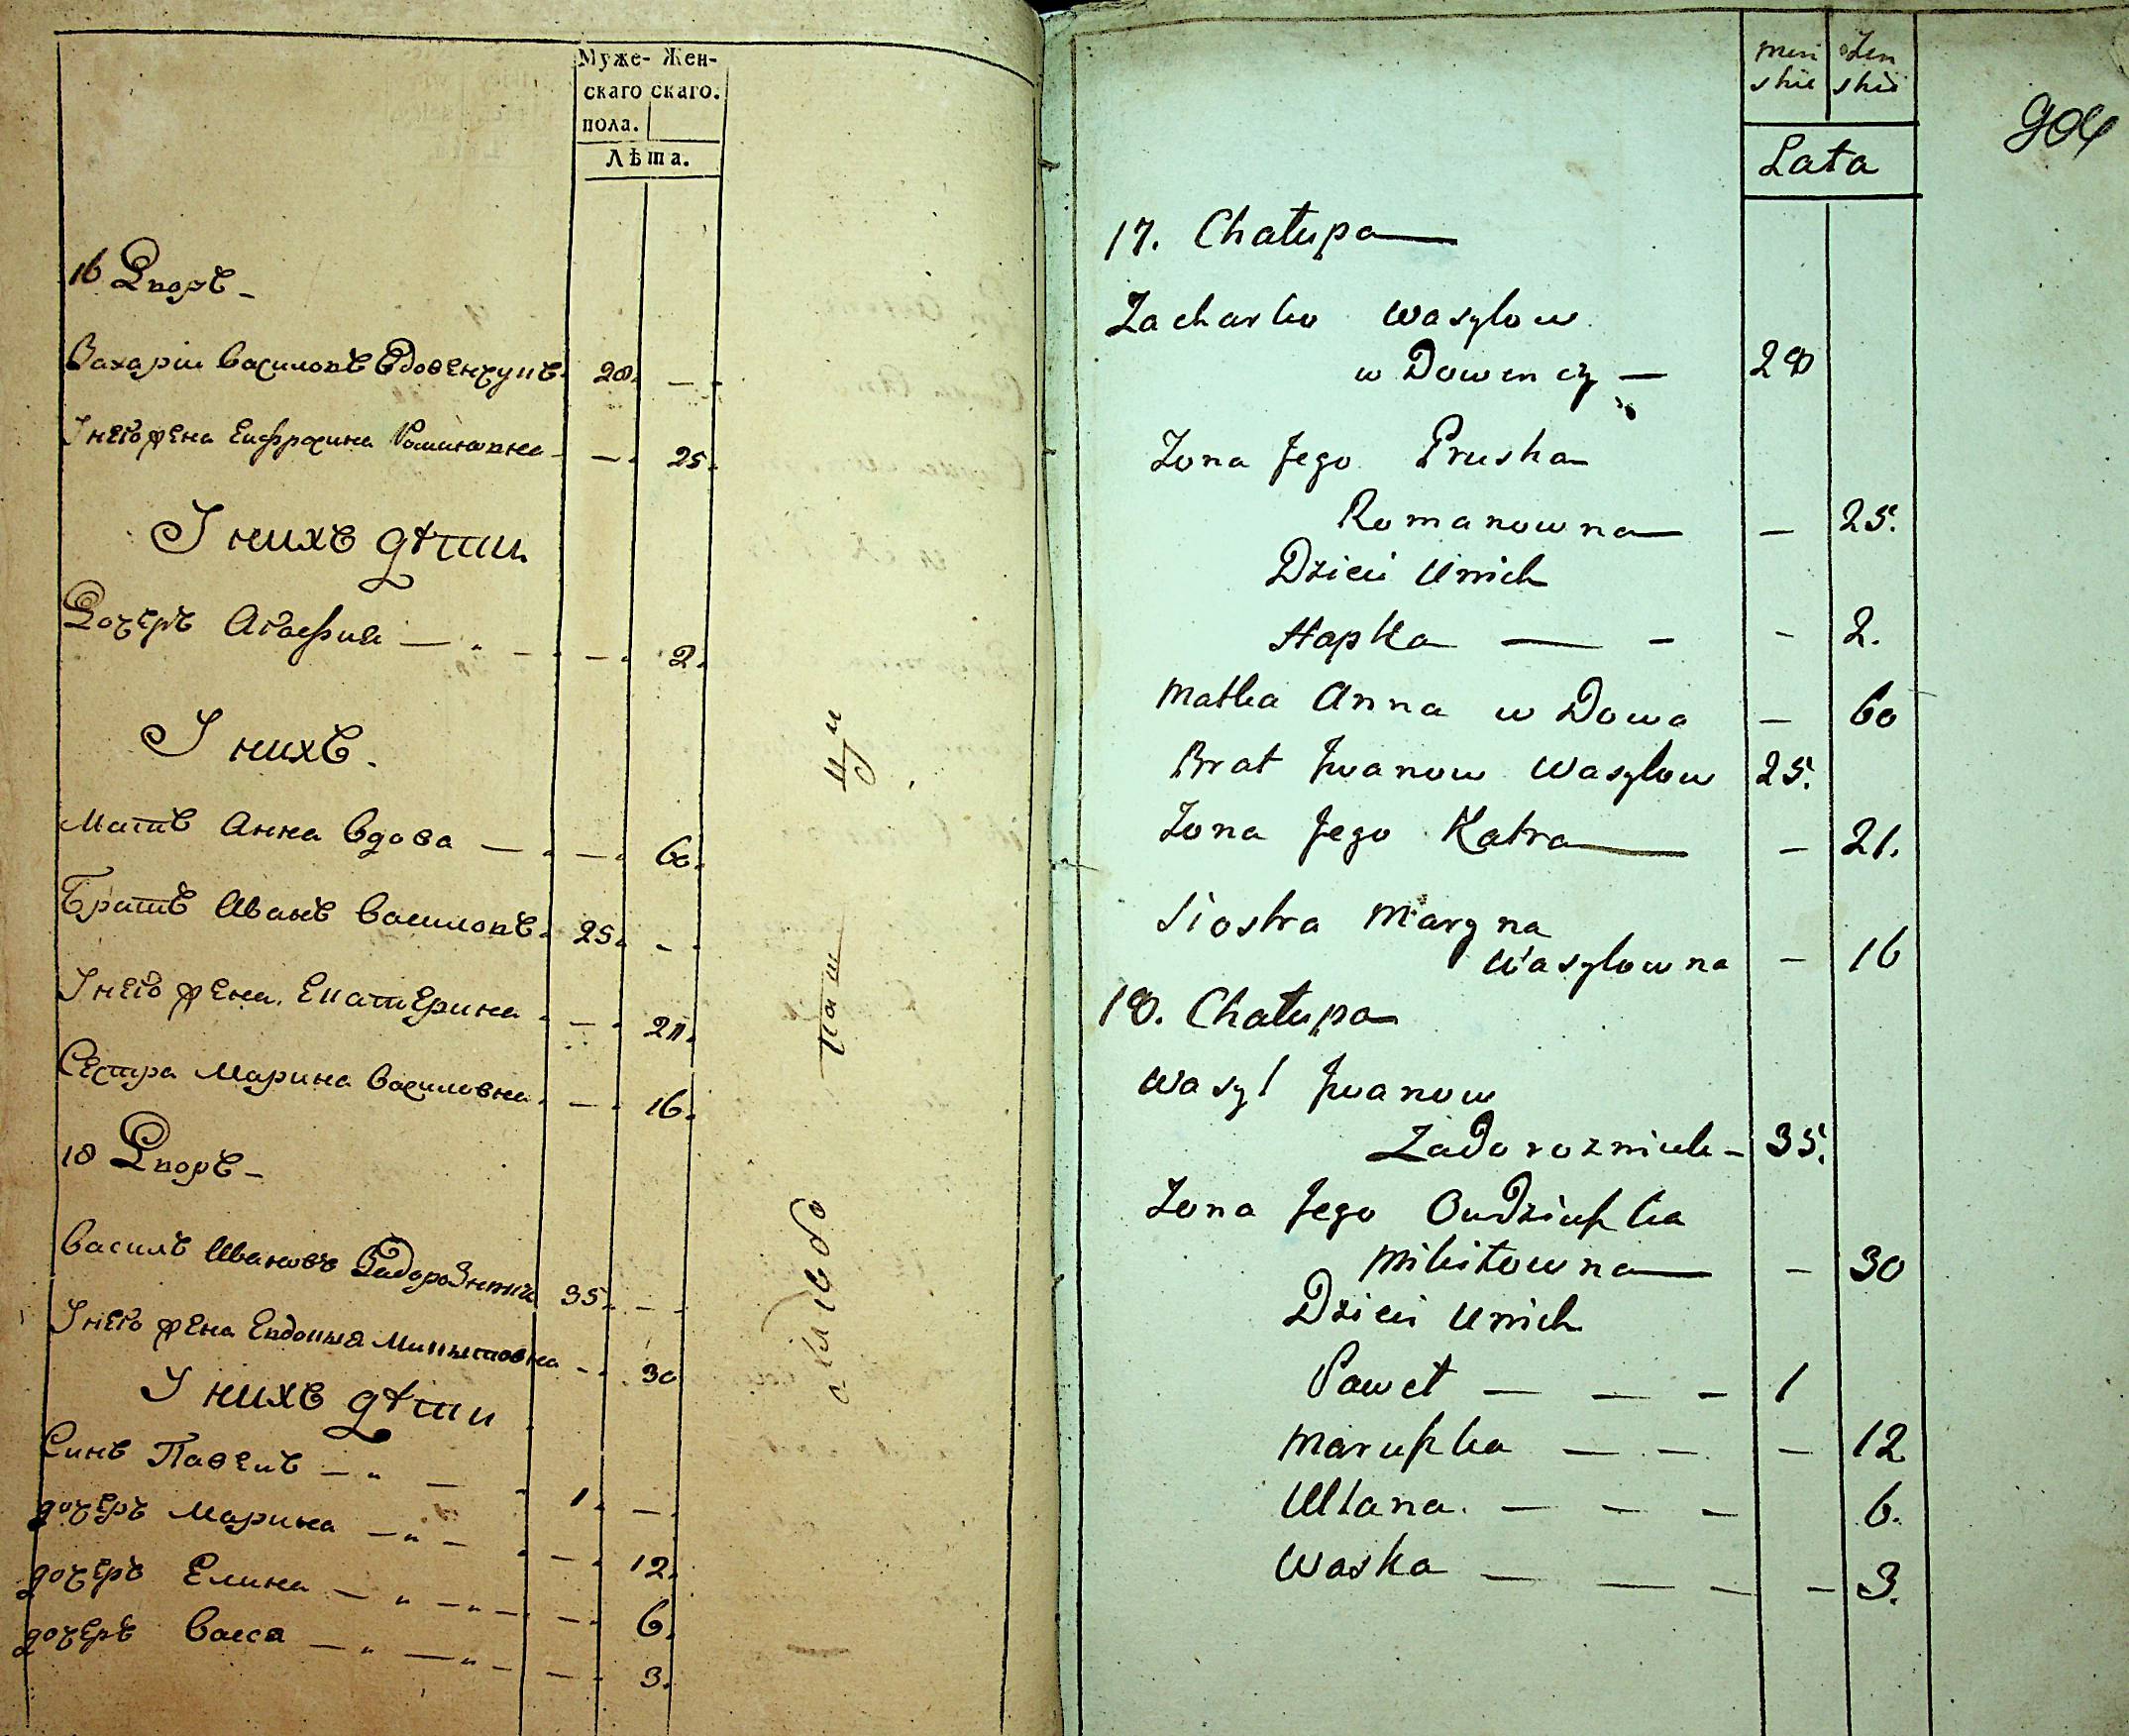 Муже- Жен-
скаго скаго.
пола.
Лѣта.
16 Дворъ
Захарій Василовъ Вдовенчукъ 28. —
У него жена Евфросина Романовна — 25.
У нихъ дѣти
Дочеръ Агафия — 2.
У нихъ
Мать Анна вдова — 60.
Братъ Иванъ Василовъ 25. —
У него жена Екатерина — 21.
Сестра Марина Василовна — 16.
18 Дворъ
Василъ Ивановъ Задорозник 35. —
У него жена Евдокия Микитовна — 30
У нихъ дѣти
Синъ Павелъ — 1. —
дочеръ Марина — 12.
дочеръ Елина — 6.
дочеръ Васса — 3.
męs żen
skie skie
Lata
904
17. Chałupa
Zacharko Wasylow
wDowenczu — 28
Zona Jego Pruska
Romanowna — 25.
Dzieci Unich
Hapka — 2.
Matka Anna wDowa — 60
Brat Jwanow Wasylow 25.
Zona Jego Katra — 21.
Siostra Maryna
Wasylowna — 16
18. Chałupa
Wasyl Jwanow
ZaDorozniuk — 35.
Zona Jego
Mikitowna — 30
Dzieci Unich
Paweł — 1
Maruszka — 12
Ullana — 6.
Waska — 3.